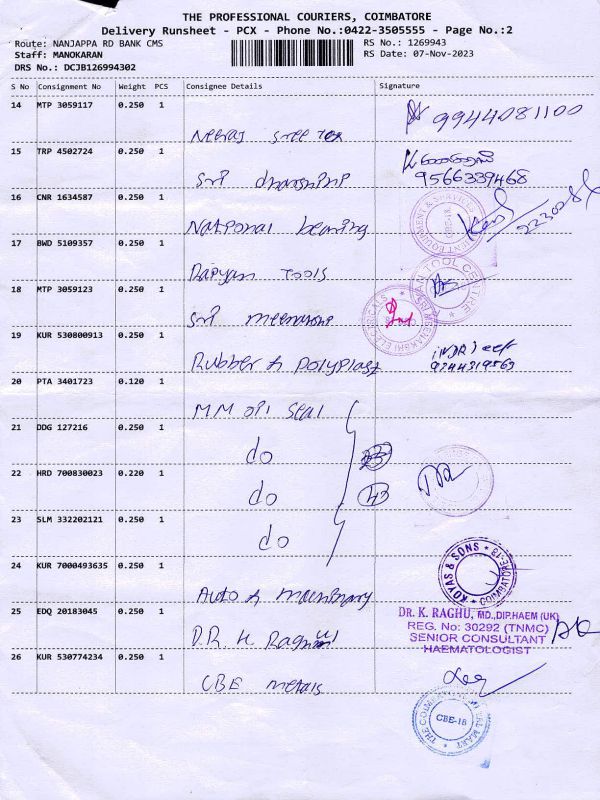 THE PROFESSIONAL COURIERS, COIMBATORE
Delivery Runsheet - PCX - Phone No.:0422-3505555 - Page No.:2
Route: NANJAPPA RD BANK CMS
RS No.: 1269943
Staff: MANOKARAN
RS Date: 07-Nov-2023
DRS No.: DCJB126994302
S No Consignment No Weight PCS Consignee Details Signature
14 MTP 3059117 0.250 1
9944081100
Neeraj steel tex
15 TRP 4502724 0.250 1
9566339468
Sri dharshini
16 CNR 1634587 0.250 1
National bearing
17 BWD 5109357 0.250 1
TOOLS
18 MTP 3059123 0.250 1
Sri meenakshi
19 KUR 530800913 0.250 1
Rubber & Polyplast
9244319563
20 PTA 3401723 0.120 1
MM oil Seal
21 DDG 127216 0.250 1
do
22 HRD 700830023 0.220 1
do
43
23 SLM 332202121 0.250 1
do
24 KUR 7000493635 0.250 1
KOVS & SONS * COIMBATORE-18 *
Auto & Machinary
25 EDQ 20183045 0.250 1
DR. K. RAGHU, MD.,DIP.HAEM (UK)
REG. No: 30292 (TNMC)
SENIOR CONSULTANT
HAEMATOLOGIST
D.R. K Raghu
26 KUR 530774234 0.250 1
CBE metals
CBE-18